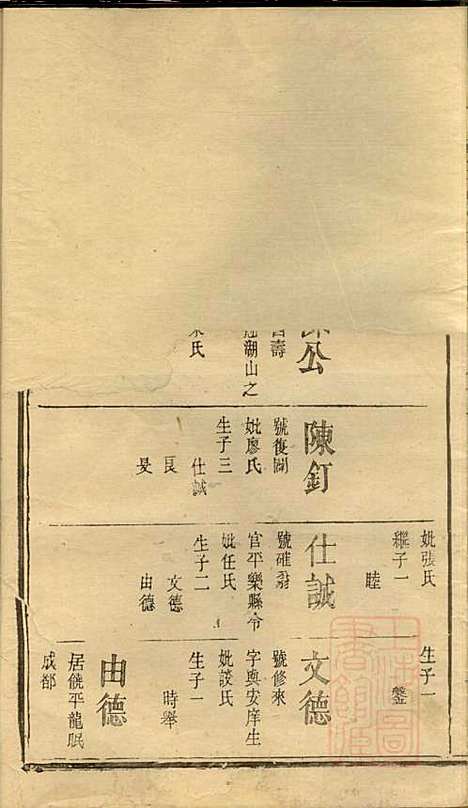 公
壽
湖山之
氏
陳釘
號復閣
妣廖氏
生子三
仕誠
艮
旻
妣張氏
繼子一
睦
仕誠
號確翁
官平樂縣令
妣任氏
生子二
文德
由德
生子一
鑿
文德
號修來
字輿安庠生
妣談氏
生子一
時舉
由德
居饒平龍眠
成都